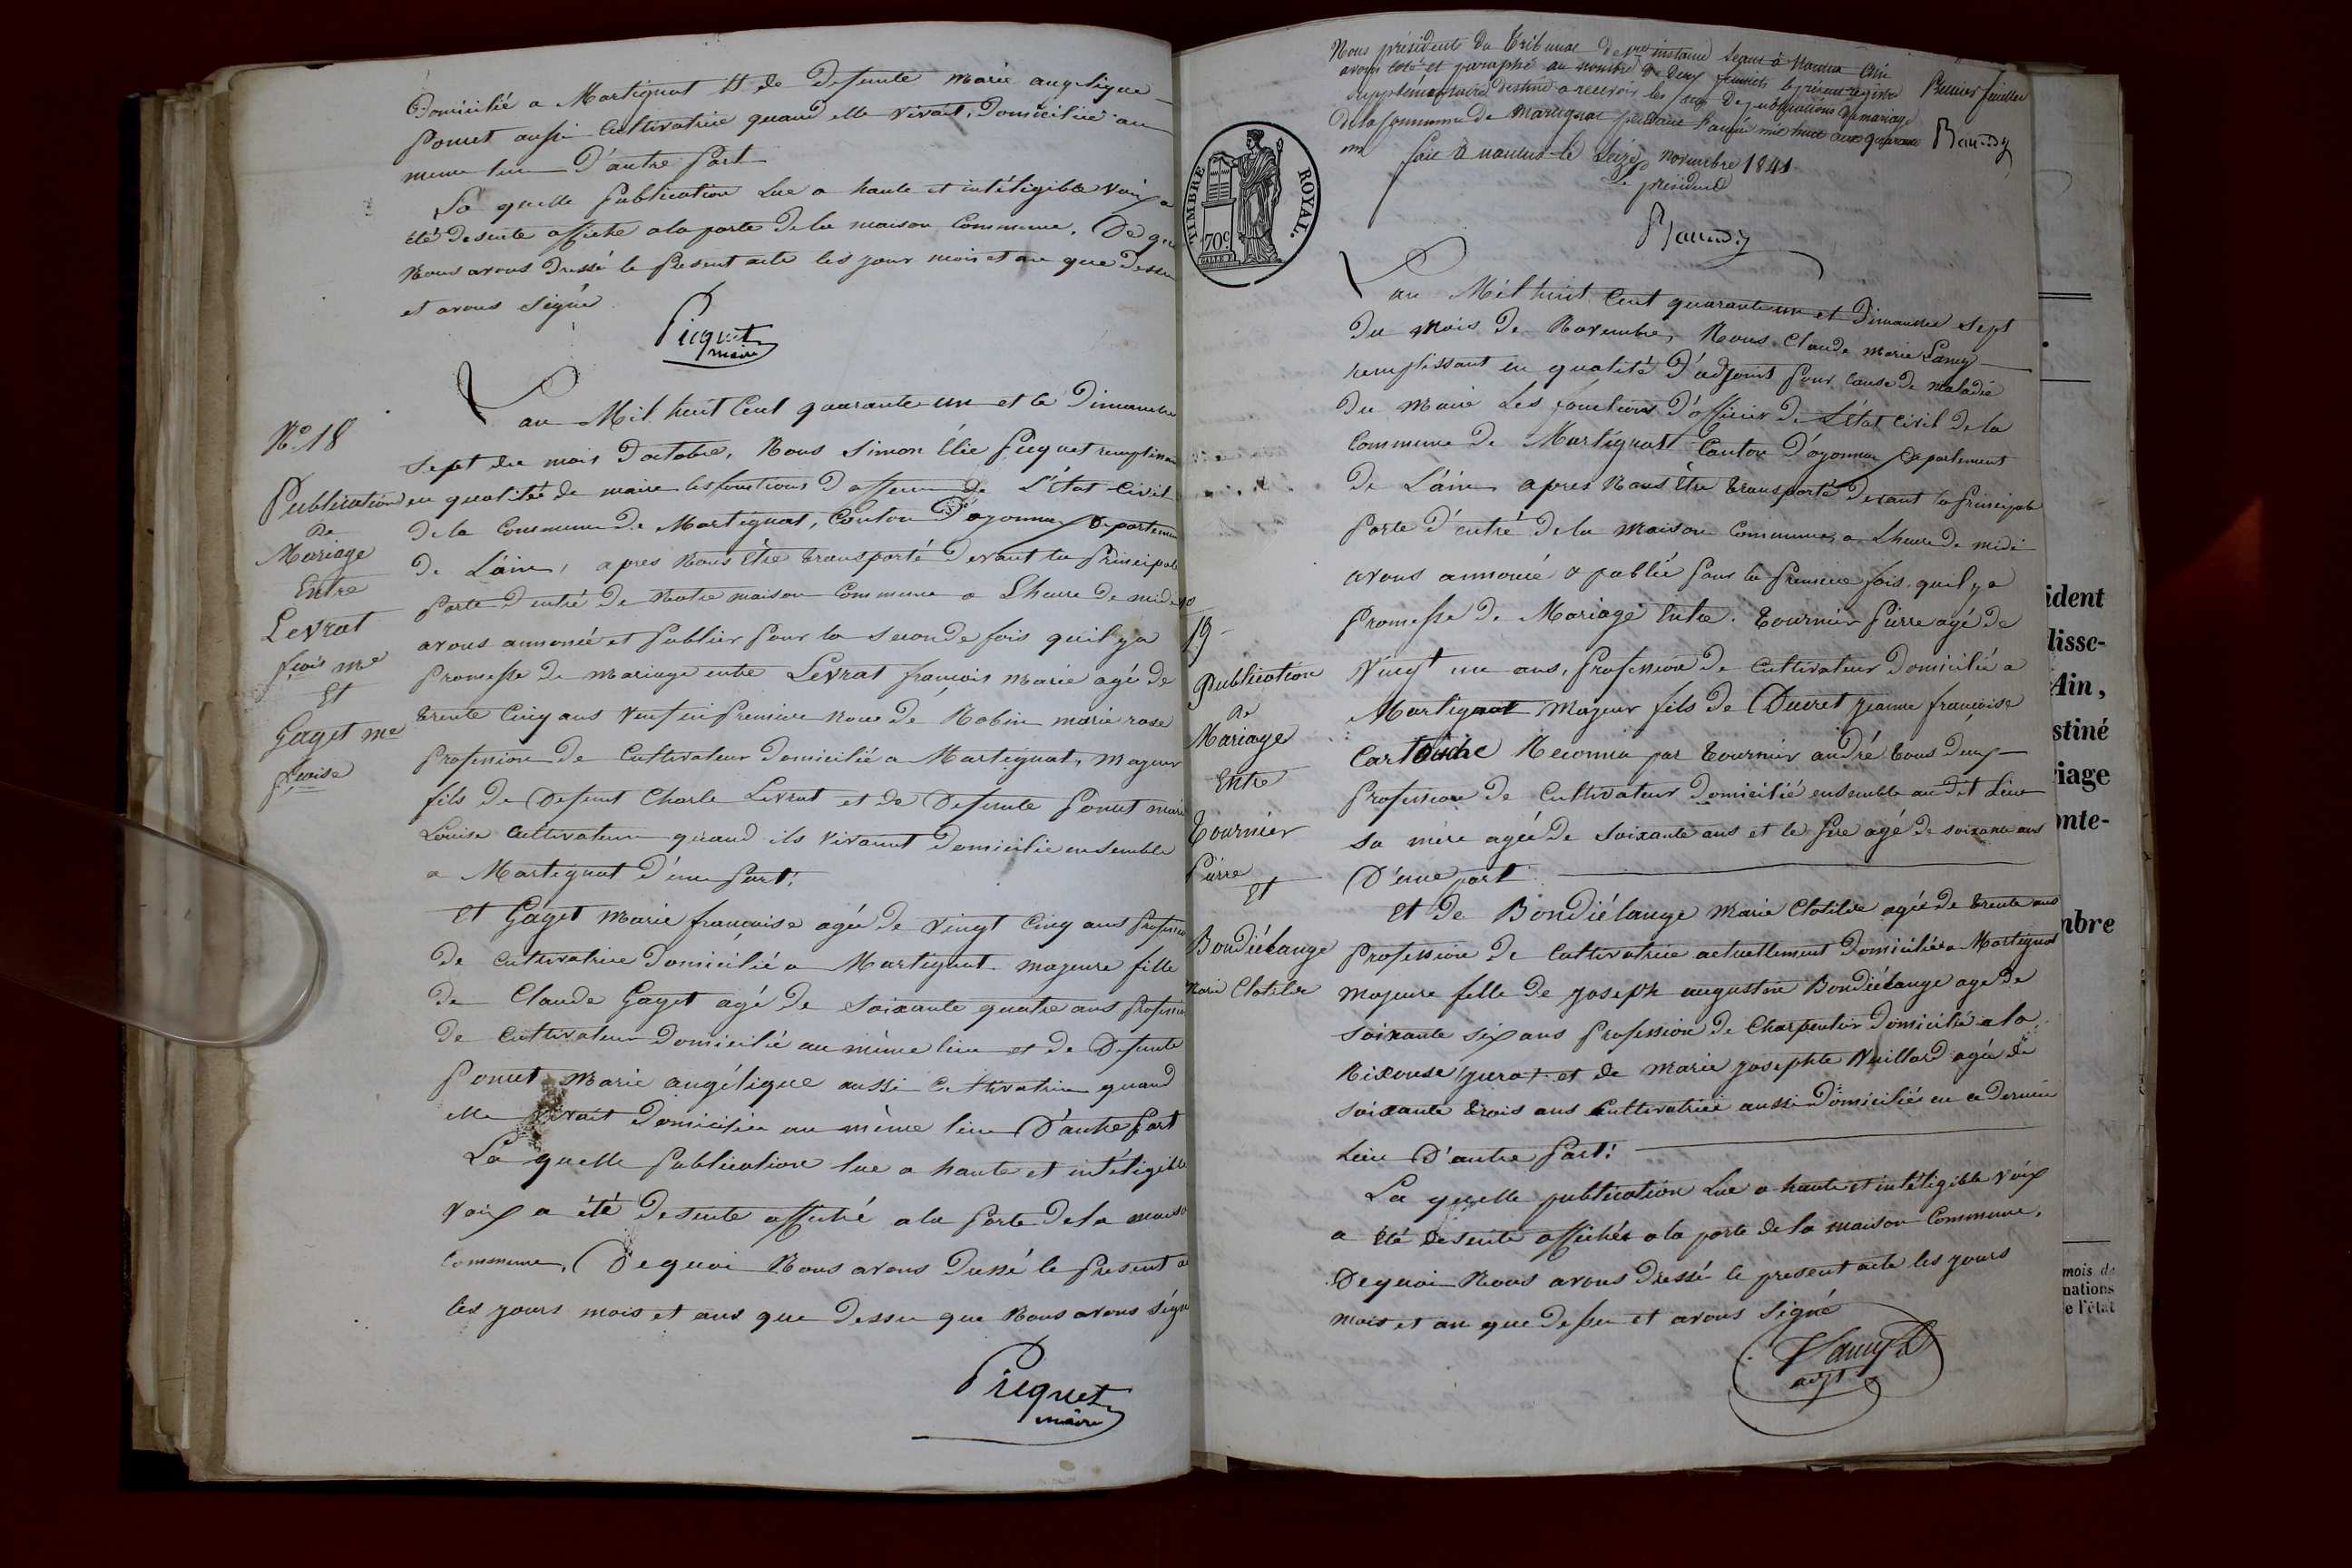 Domicilié a Martignat Et de Defunte Marie angelique
Ponset aussi Cultivatrice quand elle vivait, Domiciliée au
meme lieu D'autre Part
La quelle Publication Lue a haute et intéligible Voix a
été desuite affiche ala porte Dela maison Commune. De quoi
Nous avons Dressé le Present acte les jour mois et an que Dessu
et avons Signé
Picquet
maire
N° 18
Publication
De
Mariage
Entre
Levrat
fçois Me
Et
Gaget Me
fçoise
L'an Mil huit Cent quarante un et le Dimanche
Sept du mois D'octobre, Nous Simon Elie Picquet remplissant
en qualitée de maire les fonctions D'officier de L'état Civil
de la Commune de Martignat, Canton D'oyonnax Departement
De L'ain, apres Nous être transporté Devant la Principale
Porte D'entré de Notre maison Commune a L'heure De midi
avons annoncé et Publier Pour la Seconde fois qu'il y a
Promesse de Mariage entre Levrat françois Marie agé de
trente Cinq ans Veuf en Premiere Noce de Robin marie rose
Profession de Cultivateur domicilié a Martignat, Majeur
fils De Defunt Charle Levrat et de Defunte Ponset marie
Louise Cultivateur quand ils Vivaint Domicilié ensemble
a Martignat D'une Part;
Et Gaget Marie françoise agée de Vingt Cinq ans Profession
de Cultivatrice Domicilié a Martignat majeure fille
de Claude Gaget agé De Soixante quatre ans Profession
de Cultivateur Domicilié au mème lieu et de Defunte
Ponset Marie angélique aussi Cultivatrice quand
elle Vivait Domiciliée au mème lieu D'autre Part
La quelle Publication lue a haute et intéligible
Voix a été Desuite affiché ala Porte Dela maison
Commune, De quoi Nous avons Dressé le Present acte
les jours mois et ans que Dessu que Nous avons Signé
Picquet
maire
Nous président du Tribunal de 1ere instance séant à Nantua Ain
avons coté et paraphé au nombre de deux feuillets le présent registre
supplémentaire destiné a recevoir les actes De publications de mariage
de la Commune de Martignat pendant l'année mil huit cent quarante
un fait à Nantua le seize novembre 1841
Le président
Premier feuillet
TIMBRE ROYAL.
70c
L'an Mil huit Cent quarante un et Dimanche Sept
Du Mois De Novembre, Nous Claude Marie Lamy
remplissant en qualité D'adjoint Pour Cause De Maladie
Du Maire Les fonctions D'officier De L'état Civil de la
Commune De Martignat Canton D'oyonnax Departement
De L'ain apres Nous être transporté Devant la Principale
Porte D'entré de la Maison Commune, a L'heure De midi
avons annoncé & publié Pour la Premiere fois qu'il y a
Promesse De Mariage Entre Tournier Pierre agé De
Vingt un ans, Profession De Cultivateur Domicilié a
Martignat Majeur fils de Ducret Jeanne françoise
Cartouche Reconnu par Tournier andré tous Deux
Profession De Cultivateur Domicilié ensemble au Dit Lieu
Sa mère agée De Soixante ans et le Père agé De Soixante ans
D'une part
19
Publication
De
Mariage
Entre
Tournier
Pierre
Et
Bondiélange
Marie Clotilde
Et De Bondiélange Marie Clotilde agée De trente ans
Profession De Cultivatrice actuellement Domiciliée a Martignat
Majeure fille De Joseph augustin Bondiélange age De
Soixante six ans Profession De Charpentier Domicilié ala
Rixouse (Jura) et de Marie Josephte Vuillard agée de
Soixante trois ans Cultivatrice aussi Domiciliée en ce dernier
Lieu D'autre Part:
La quelle publication Lue a haute et intéligible Voix
a été Desuite affichée ala porte de la maison Commune,
De quoi Nous avons Dressé le present acte les jours
Mois et an que Dessu et avons Signé
Lamy
adjt
ident
lisse-
Ain,
stiné
riage
onte-
mbre
mois de
mations
e l'état